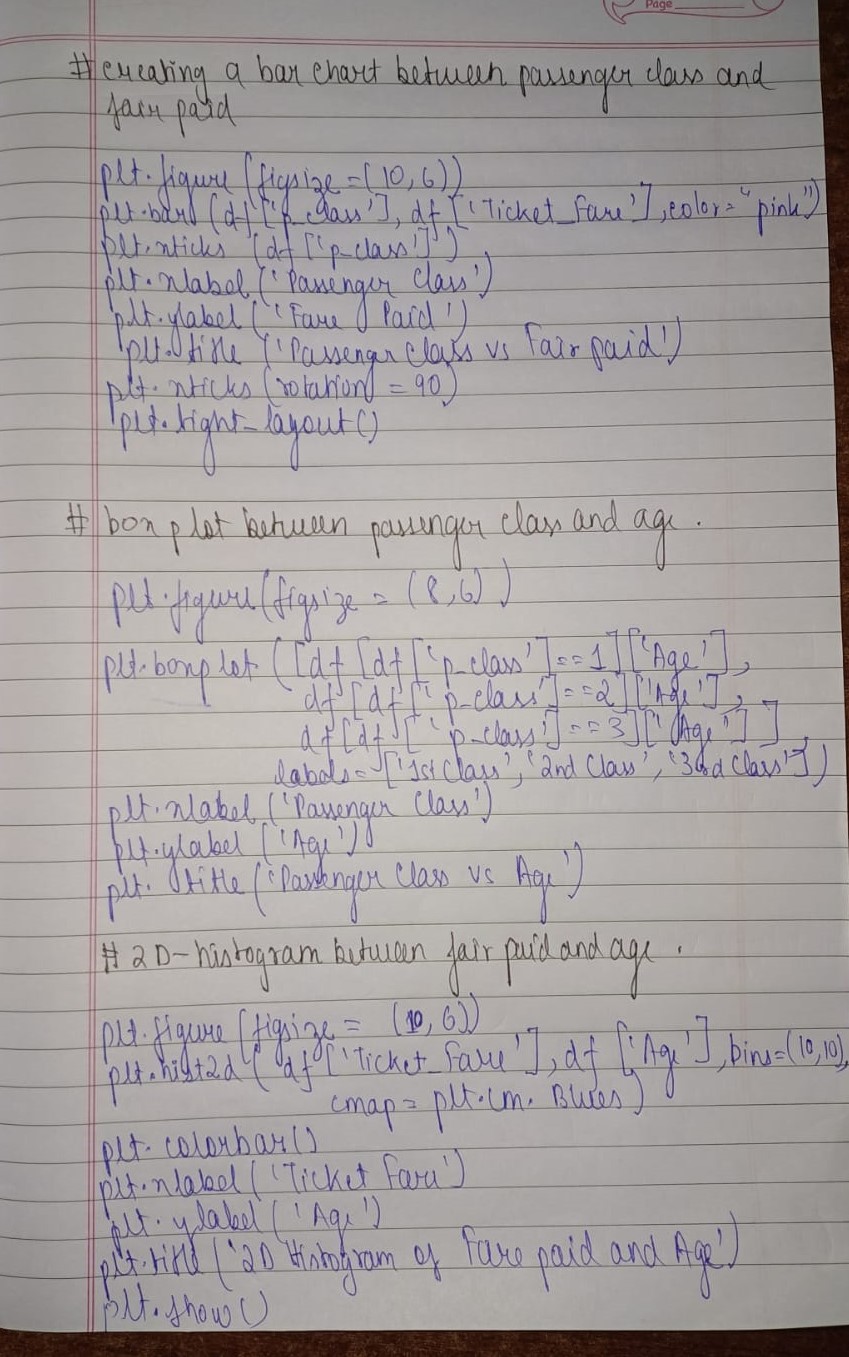 Page
# creating a bar chart between passenger class and
fair paid
plt.figure (figsize = (10,6))
plt.bar (df['p_class'], df['Ticket_Fare'], color="pink")
plt.xticks (df['p-class'])
plt.xlabel ('Passenger Class')
plt.ylabel ('Fare Paid')
plt.title ('Passenger Class vs Fair paid')
plt.xticks (rotation = 90)
plt.tight_layout()
# box plot between passenger class and age.
plt.figure(figsize = (8,6))
plt.boxplot ([df [df['p_class']==1]['Age'],
df [df ['p_class']==2]['Age'],
df [df ['p_class']==3]['Age']],
labels=['1st Class', '2nd Class', '3rd Class'])
plt.xlabel ('Passenger Class')
plt.ylabel ('Age')
plt.title ('Passenger Class vs Age')
# 2D-histogram between fair paid and age.
plt.figure (figsize = (10,6))
plt.hist2d (df['Ticket_Fare'], df ['Age'], bins=(10,10),
cmap = plt.cm.Blues)
plt.colorbar()
plt.xlabel ('Ticket Fare')
plt.ylabel ('Age')
plt.title ('2D Histogram of Fare paid and Age')
plt.show()